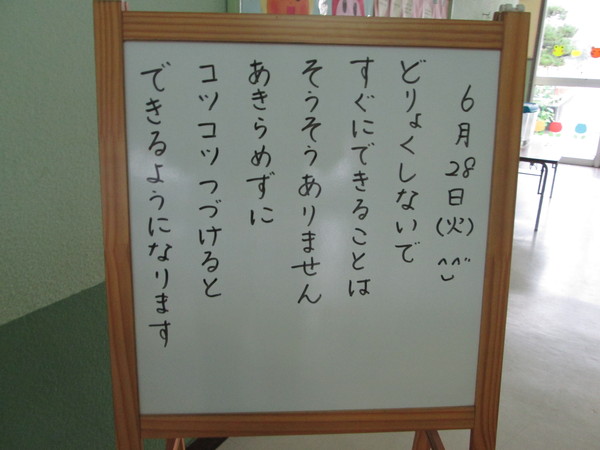 6月28日(火)^^
どりょくしないで
すぐにできることは
そうそうありません
あきらめずに
コツコツつづけると
できるようになります